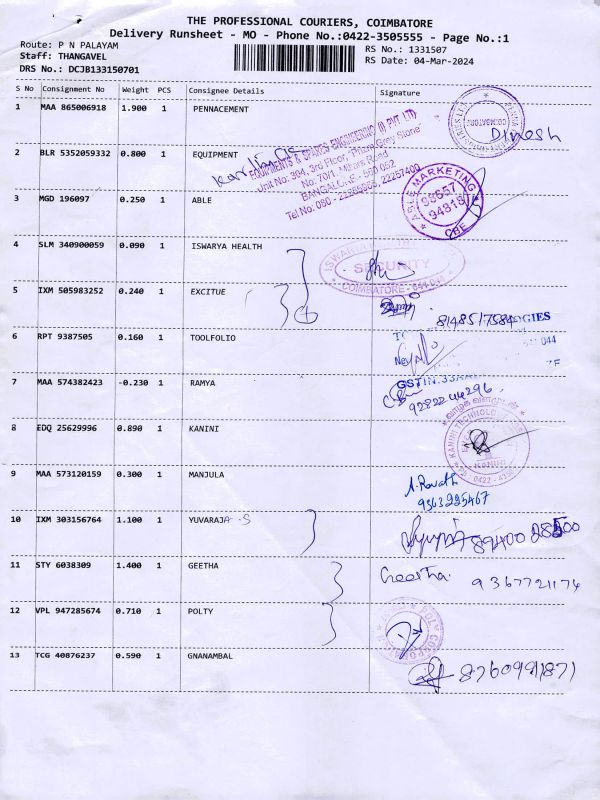 THE PROFESSIONAL COURIERS, COIMBATORE
Delivery Runsheet - MO - Phone No.:0422-3505555 - Page No.:1
Route: P N PALAYAM
RS No.: 1331507
Staff: THANGAVEL
RS Date: 04-Mar-2024
DRS No.: DCJB133150701
S No Consignment No Weight PCS Consignee Details Signature
1 MAA 865006918 1.900 1 PENNACEMENT
COIMBATORE
Dinesh
2 BLR 5352059332 0.800 1 EQUIPMENT
EQUIPMENTS & SPARES ENGINEERING (I) PVT LTD
Unit No: 304, 3rd Floor,
BANGALORE - 560 052
3 MGD 196097 0.250 1 ABLE
ABLE MARKETING
CBE
4 SLM 340900059 0.090 1 ISWARYA HEALTH
ISWARYA
SECURITY
COIMBATORE
5 IXM 505983252 0.240 1 EXCITUE
6 RPT 9387505 0.160 1 TOOLFOLIO
GIES
044
7 MAA 574382423 -0.230 1 RAMYA
GSTIN:33AA
8 EDQ 25629996 0.890 1 KANINI
KANINI TECHNOLOG
KANINI
9 MAA 573120159 0.300 1 MANJULA
9363225467
10 IXM 303156764 1.100 1 YUVARAJA S
11 STY 6038309 1.400 1 GEETHA
Geetha.
9367721174
12 VPL 947285674 0.710 1 POLTY
13 TCG 40876237 0.590 1 GNANAMBAL
8760991871